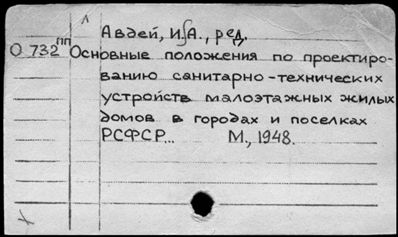 Авдей, И.А., ред.
О 732 ПП Основные положения по проектиро-
ванию санитарно-технических
устройств малоэтажных жилых
домов в городах и поселках
РСФСР... М., 1948.